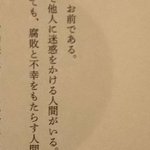 お前である。
他人に迷惑をかける人間がいる。
ても、腐敗と不幸をもたらす人間